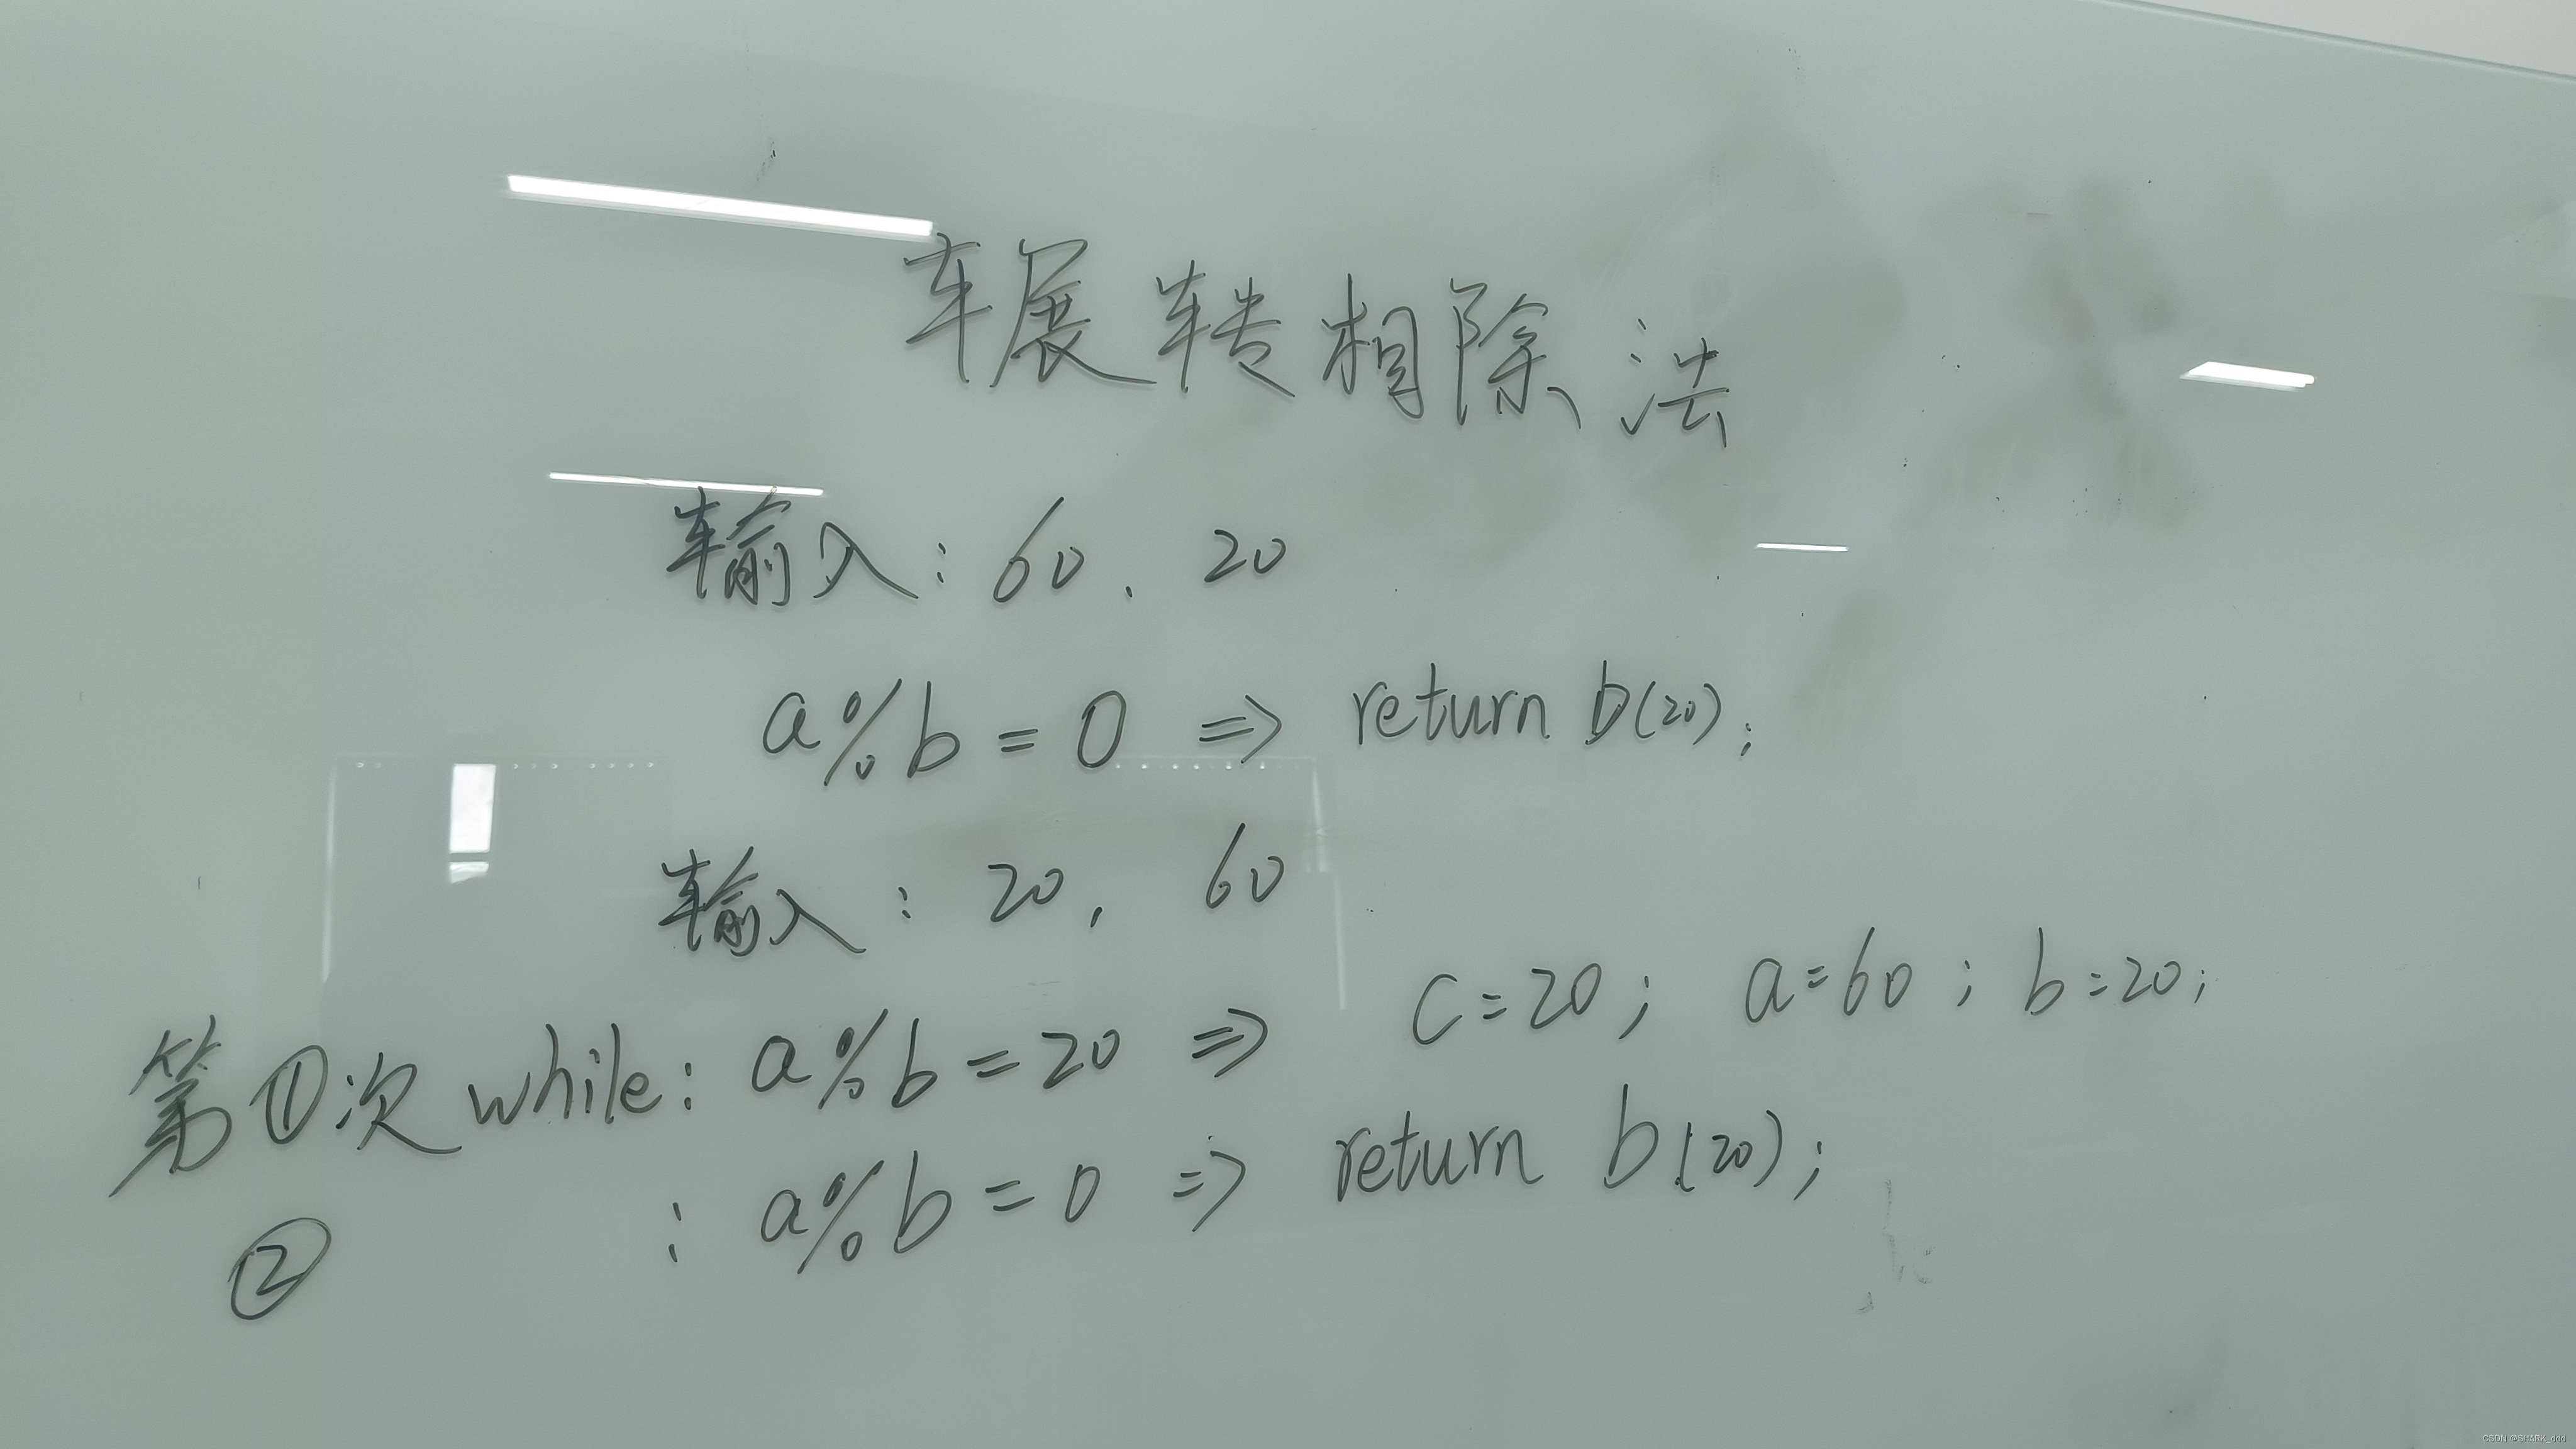 辗转相除法
输入: 60, 20
a%b=0 => return b(20);
输入: 20, 60
第①次while: a%b=20 => c=20; a=60; b=20;
② : a%b=0 => return b(20);
CSDN @SHARK_ddd